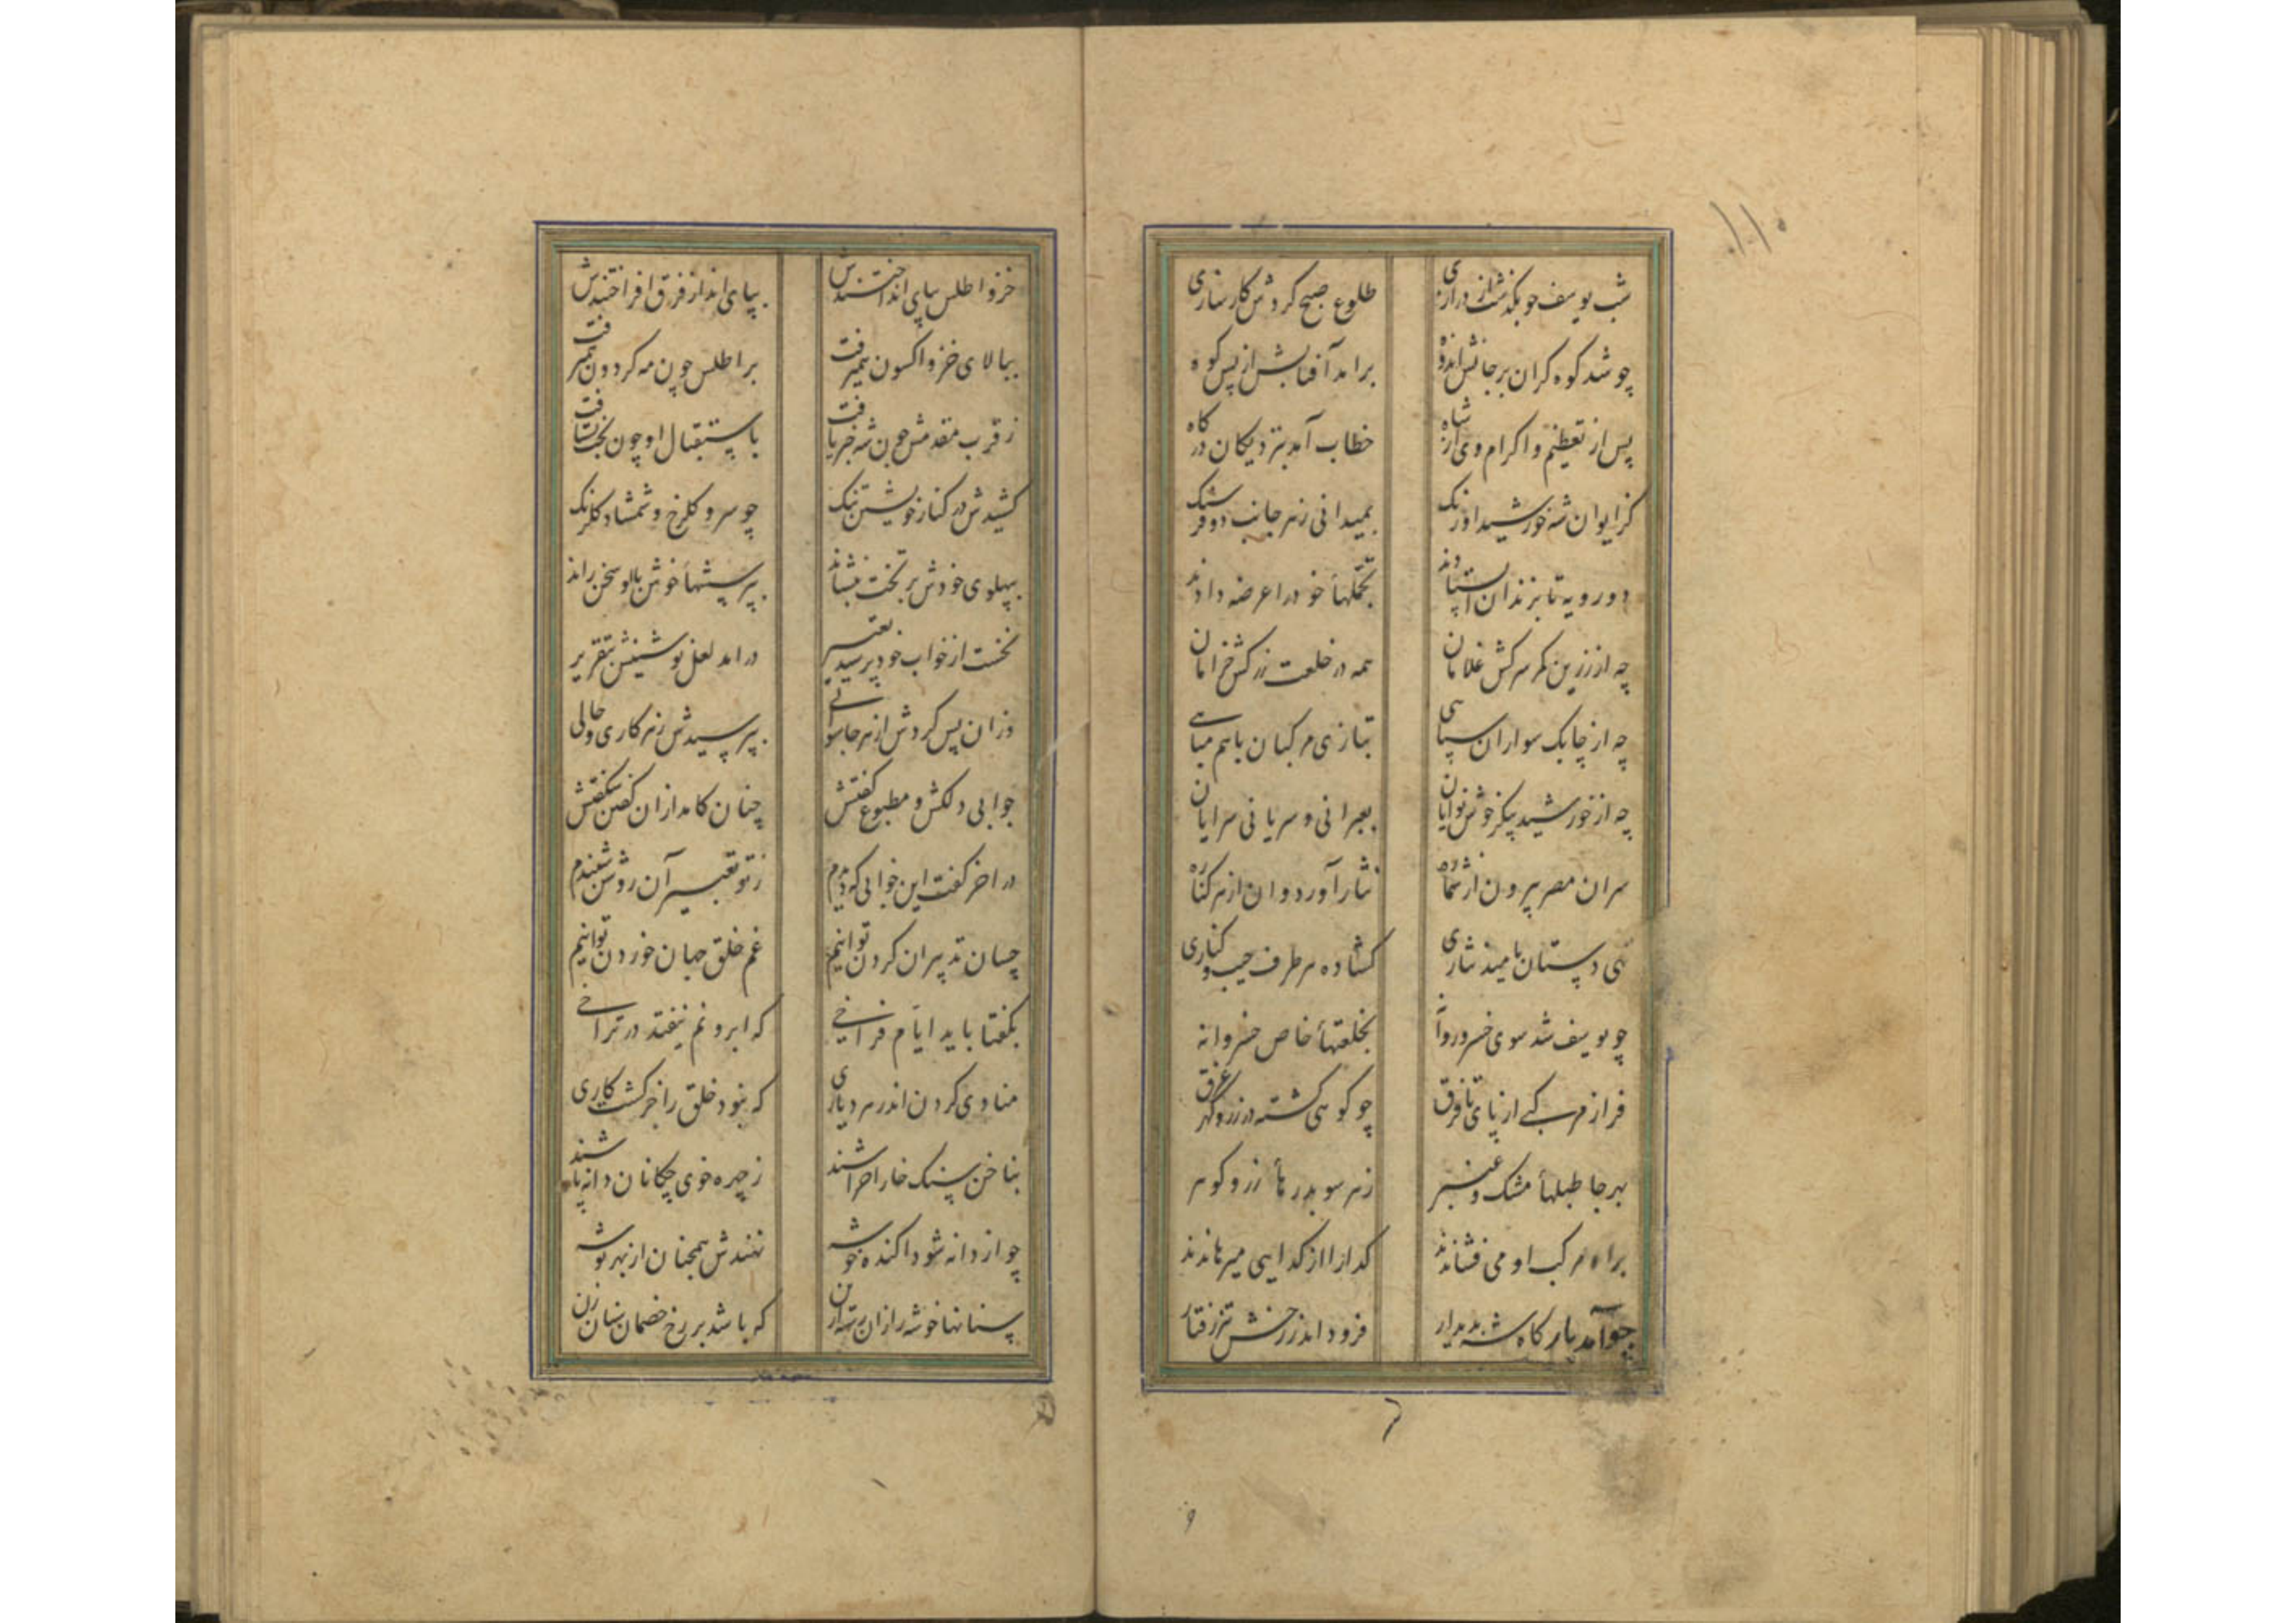 ۱۱۰
شب یوسف چو بگذشت از درازی طلوع صبح کردش کارسازی
چو شد کوه کران بر جانش اندوه برامد آفتابش از پس کوه
پس از تعظیم و اکرام وی از شاه خطاب آمد بنزدیکان درگاه
کز ایوان شه خورشید اورنک بمیدانی زهر جانب دو فرسنک
دو رویه تا بزندان ایستادند تجملهاء خود را عرضه دادند
چه از زرین کمر سرکش غلامان همه در خلعت زرکش خرامان
چه از چابک سواران سپاهی بتازی مرکبان باهم مباهی
چه از خورشید پیکر خوش نوایان بعبرانی و سریانی سرایان
سران مصر بیرون از شماره نثار آورد و ان از هر کناره
تهی دستان بامید نثاری کشاده هر طرف جیب و کناری
چو یوسف شد سوی خسرو روانه بخلعتهاء خاص خسروانه
فراز مرکبی از پای تا فرق چو کوهی کشته در زر و کهر غرق
بهر جا طبلهاء مشک و عنبر زهر سو بدرهاء زر و کوهر
براه مرکب او می فشاندند کدا را از کدایی میرهاندند
چو آمد بارکاه شه پدیدار فرود امد ز رخش تیز رفتار
خز و اطلس بپای انداختندش بپای انداز فرق افراختندش
ببالای خز و اکسون همیرفت بر اطلس چون مه کردون همیرفت
ز قرب مقدمش چون شه خبر یافت باستقبال او چون بخت بشتافت
کشیدش در کنار خویشتن تنک چو سرو کلرخ و شمشاد کلرنک
بپهلوی خودش بر تخت بنشاند بپرسشهاء خوش با او سخن راند
نخست از خواب خود پرسید تعبیر درامد لعل نوشینش بتقریر
وزان پس کردش از هر جا سوالی بپرسیدش زهر کاری و حالی
جوابی دلکش و مطبوع کفتش چنان کامد ازان کفتن شکفتش
در اخر کفت این خوابی که دیدم ز تو تعبیر آن روشن شنیدم
چسان تدبیر ان کردن توانیم غم خلق جهان خوردن توانیم
بکفتا باید ایام فراخی که ابر و نم نیفتد در تراخی
منادی کردن اندر هر دیاری که نبود خلق را جز کشت کاری
بناخن سنک خارا را خراشند ز چهره خوی چکانان دانه پاشند
چو از دانه شود اکنده خوشه نهندش همچنان از بهر توشه
سنانها خوشه را زان رسته از تن که باشد بر رخ خصمان سنان زن